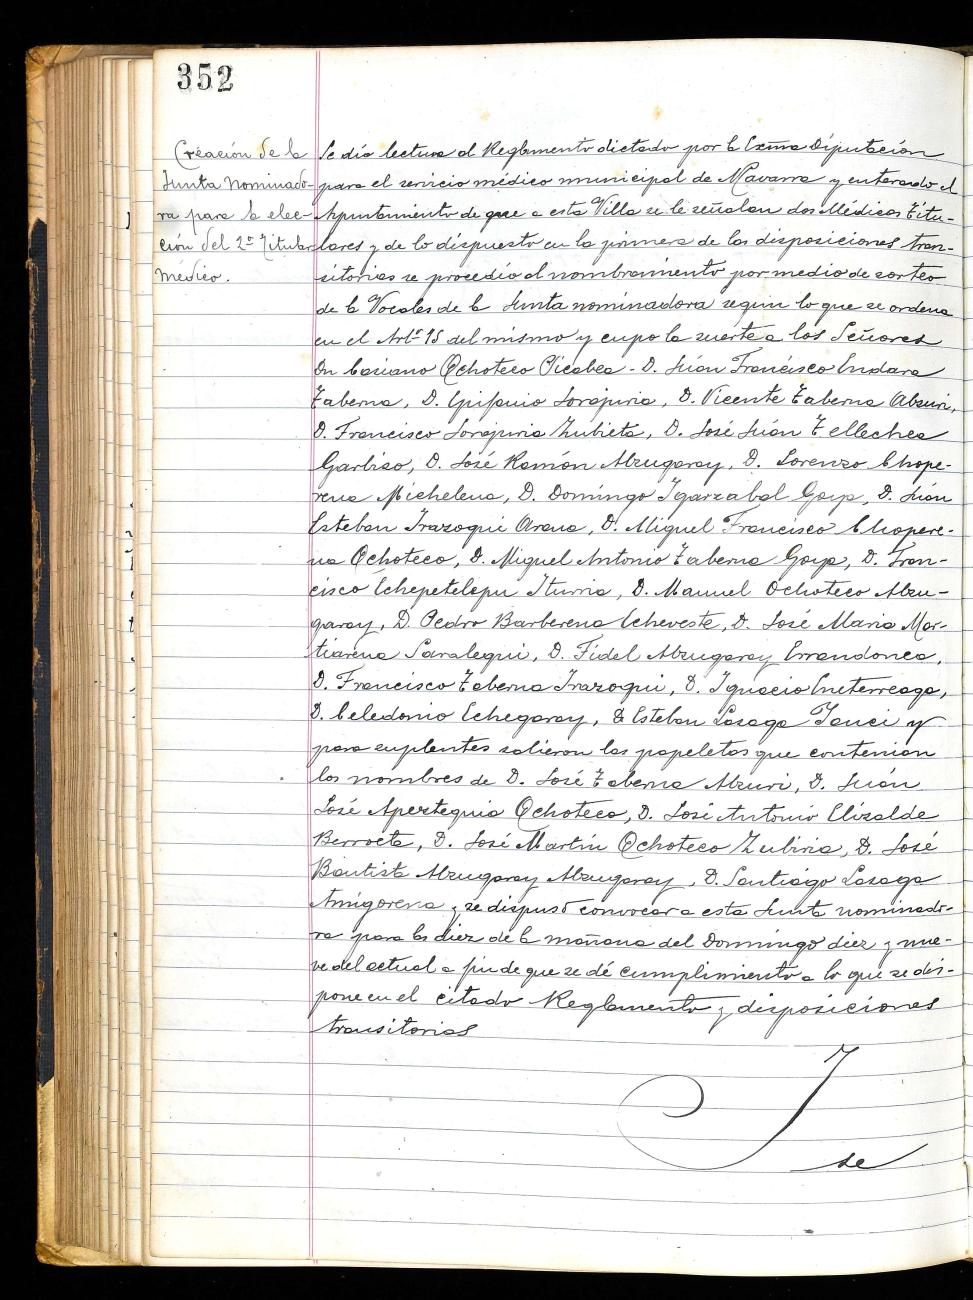 352
Creación de la
Junta Nominado-
ra para la elec-
ción del 2º Titular
Médico.
Se dió lectura al Reglamento dictado por la Exma Diputación
para el servicio médico municipal de Navarra y enterado el
Ayuntamiento de que a esta Villa se le señalan dos Médicos Titu-
lares y de lo dispuesto en la primera de las disposiciones tran-
sitorias se procedió al nombramiento por medio de sorteo
de la Vocales de la Junta nominadora segun lo que se ordena
en el Artº 15 del mismo y cupo la suerte a los Señores
Dn Casiano Ochoteco Picabea - D. Juán Francisco Endara
Taberna, D. Epifanio Sorajuria, D. Vicente Taberna Abzuri,
D. Francisco Sorajuria Zubieta, D. José Juán Tellechea
Garbiso, D. José Ramón Alzugaray, D. Lorenzo Chope-
rena Michelena, D. Domingo Igarzabal Goya, D. Juán
Esteban Irazoqui Arana, D. Miguel Francisco Chopere-
na Ochoteco, D. Miguel Antonio Taberna Goya, D. Fran-
cisco Echepetelepu Iturria, D. Manuel Ochoteco Alzu-
garay, D. Pedro Barberena Echeveste, D. José Maria Mar-
tiarena Saralegui, D. Fidel Alzugaray Errandonea,
D. Francisco Taberna Irazoqui, D. Ignacio Eneterreaga,
D. Celedonio Echegaray, D Esteban Lasaga Yanci y
para suplentes salieron las papeletas que contenian
los nombres de D. José Taberna Alzuri, D. Juán
José Apezteguia Ochoteco, D. José Antonio Elizalde
Berroeta, D. José Martín Ochoteco Zubiria, D. José
Bautista Alzugaray Alzugaray, D. Santiágo Lasaga
Amigorena y se dispusó convocar a esta Junta nominado-
ra para las diez de la mañana del Domingo diez y nue-
ve del actual a fin de que se dé cumplimiento a lo que se dis-
pone en el citado Reglamento y disposiciones
transitorias
se